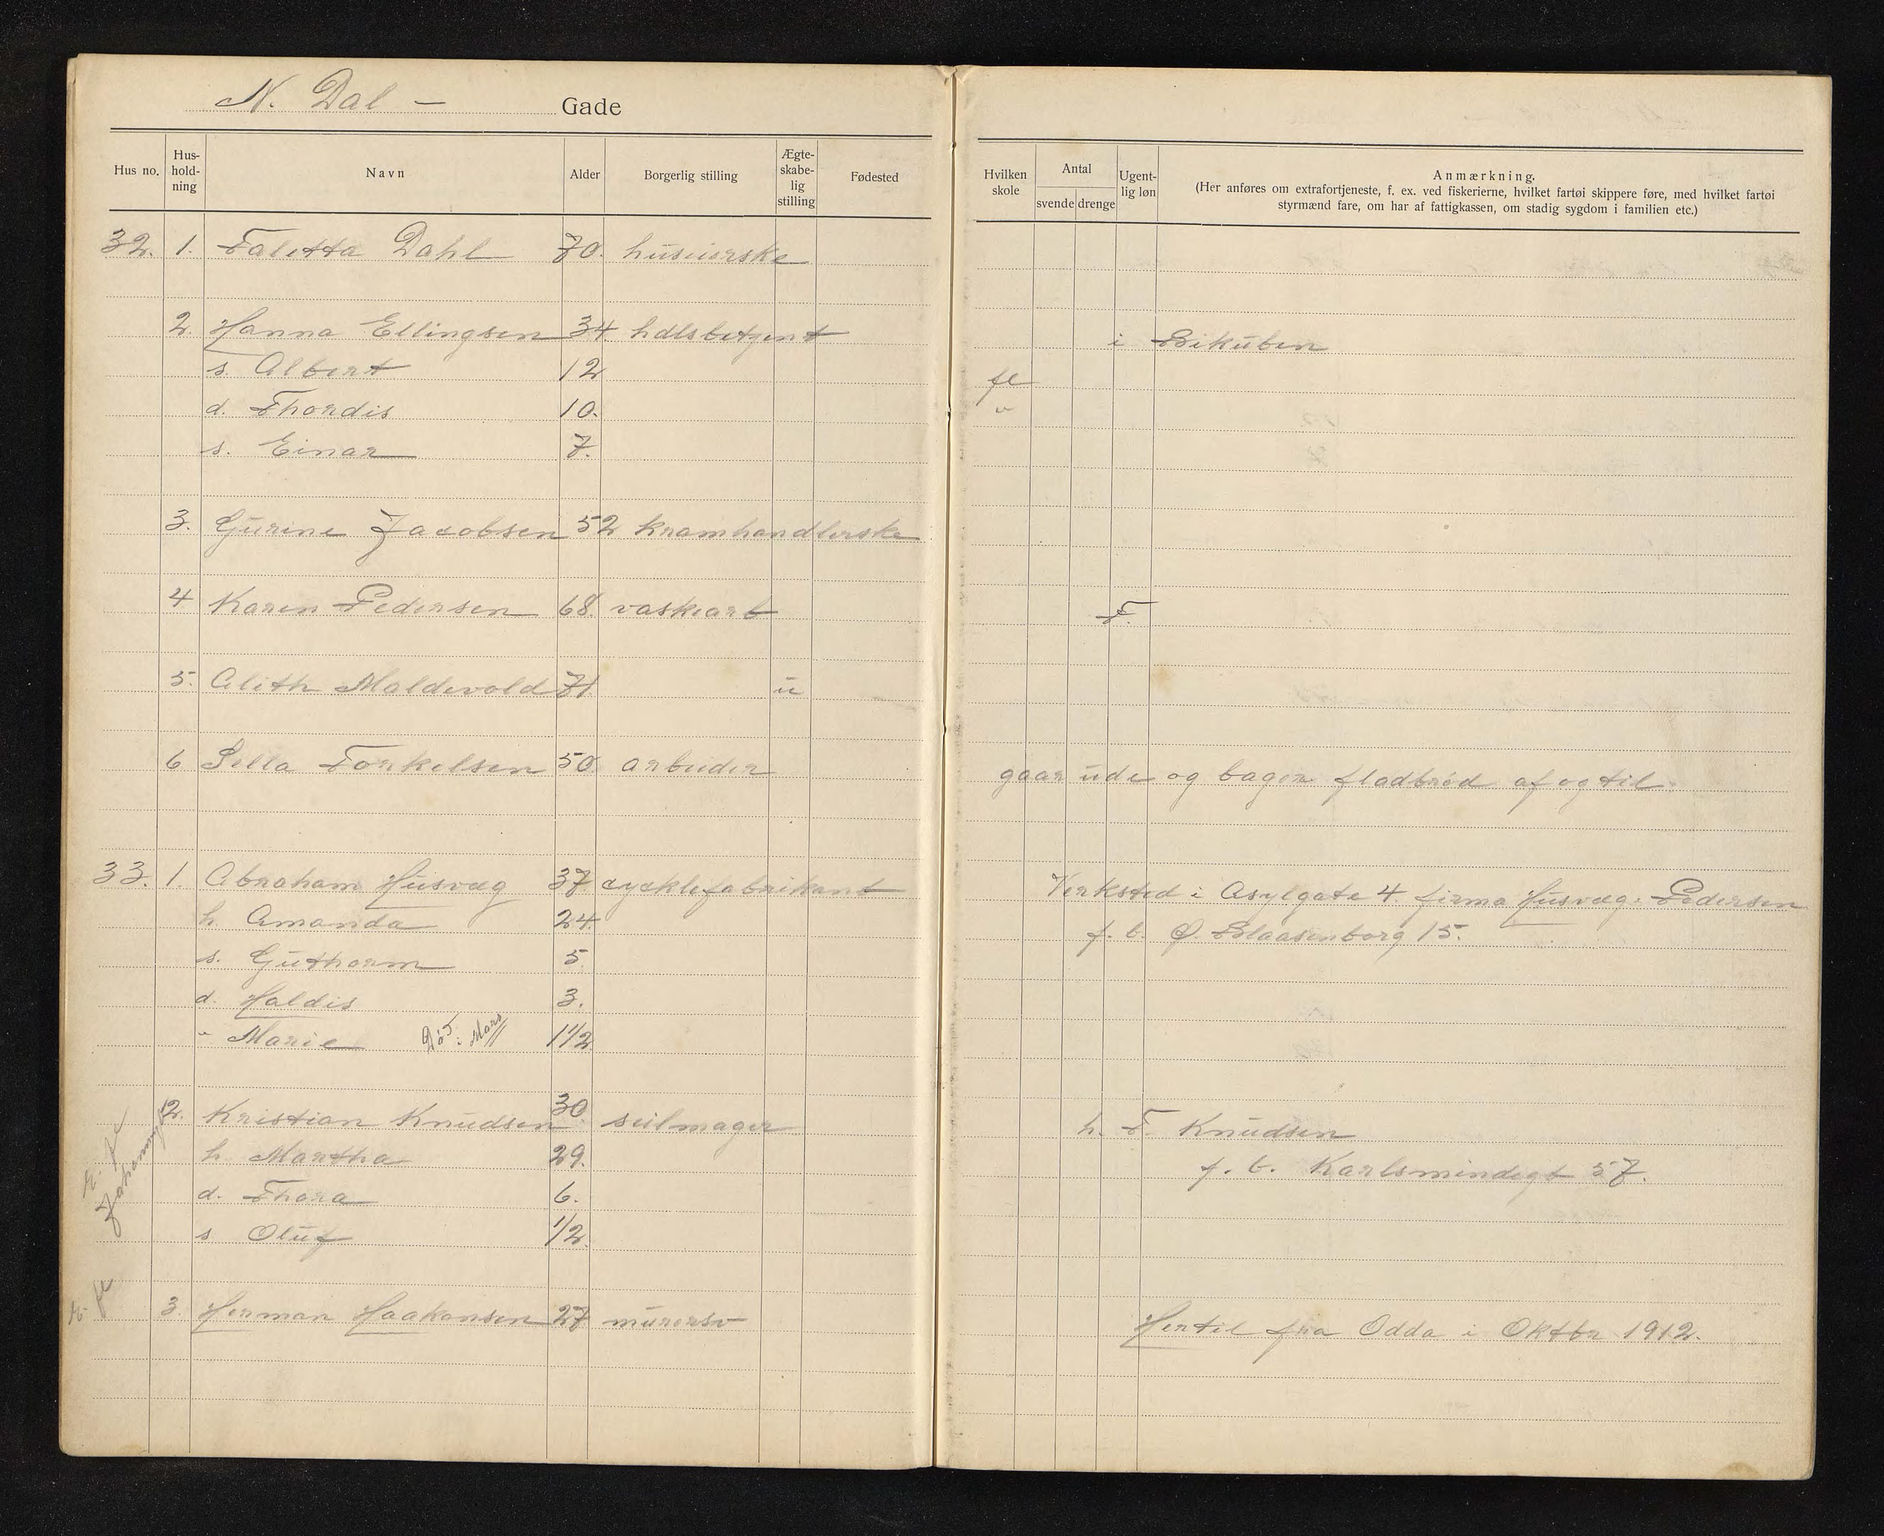 N. Dal — Gade
Hus no. Hus-hold-ning Navn Alder Borgerlig stilling Ægte-skabe-lig stilling Fødested
Hvilken skole Antal svende drenge Ugent-lig løn Anmærkning.
(Her anføres om extrafortjeneste, f. ex. ved fiskerierne, hvilket fartøi skippere føre, med hvilket fartøi
styrmænd fare, om har af fattigkassen, om stadig sygdom i familien etc.)
32. 1. Taletta Dahl 70. husierske
2. Hanna Ellingsen 34. hdlsbetjent i Bikuben
s. Albert 12 fl
d. Thordis 10. "
s. Einar 7.
3. Gurine Jacobsen 52 kramhandlerske
4 Karen Pedersen 68. vaskearb F.
5. Alith Maldevold 71. u
6 Sella Torkelsen 50. arbeider gaar ude og bager fladbrød af og til.
33. 1. Abraham Husvæg 37 cyclefabrikant Verksted i Asylgate 4. firma Husvæg. Pedersen
h Amanda 24. f. b. Ø. Blaasenborg 15.
s. Guthorm 5
d. Haldis 3.
" Marie Død i Mars 1 1/2
2. Kristian Knudsen 30 seilmager h. T. Knudsen
h Martha 29. f. b. Karlsmindegt 57.
d. Thora 6.
s Oluf 1/2
3. Herman Haakonsen 27 murersv Hertil fra Odda i Oktbr 1912.